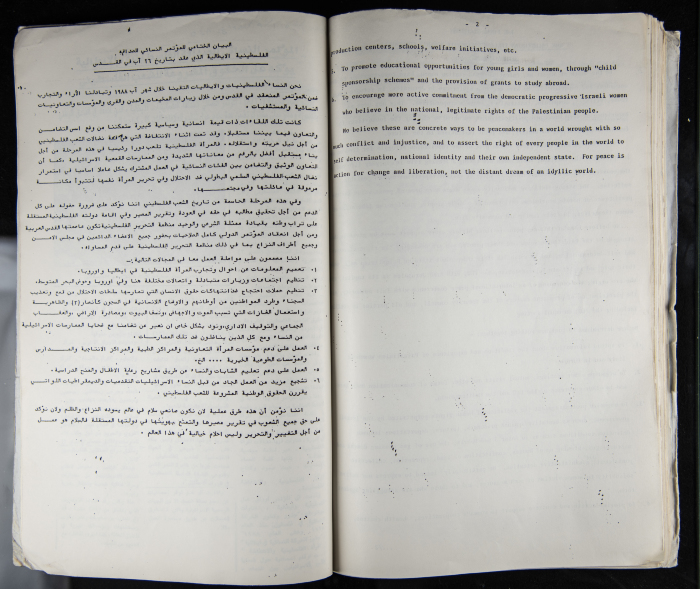 البيان الختامي للمؤتمر النسائي للعدالة
الفلسطينية الايطالية الذي عقد بتاريخ ٢٦ آب في القدس
نحن النساء الفلسطينيات والايطاليات التقينا خلال شهر آب ١٩٨٨ وتبادلنا الآراء والتجارب
ضمن المؤتمر المنعقد في القدس ومن خلال زيارات المخيمات والمدن والقرى والمؤسسات والتعاونيات
النسائية والمستشفيات .
كانت تلك اللقاءات ذات قيمة انسانية وسياسية كبيرة ستمكننا من رفع اسس التضامن
والتعاون فيما بيننا مستقبلا، وقد تمت اثناء الانتفاضة التي هي قمة نضالات الشعب الفلسطيني
من أجل نيل حريته واستقلاله ، فالمرأة الفلسطينية تلعب دورا رئيسيا في هذه المرحلة من أجل
بناء مستقبل أفضل بالرغم من معاناتها الشديدة ومن الممارسات القمعية الاسرائيلية ،كما أن
التعاون الوثيق والتضامن بين الفئات النسائية في العمل المشترك يشكل عاملا اساسيا في استمرار
نضال الشعب الفلسطيني السلمي البطولي ضد الاحتلال وفي تحرير المرأة نفسها لتتبوأ مكانة
مرموقة في عائلتها وفي مجتمعها.
وفي هذه المرحلة الحاسمة من تاريخ الشعب الفلسطيني اننا نؤكد على ضرورة مقولة على كل
الدعم من أجل تحقيق مطالبه في حقه في العودة وتقرير المصير وفي اقامة دولته الفلسطينية المستقلة
على تراب وطنه بقيادة ممثله الشرعي والوحيد منظمة التحرير الفلسطينية تكون عاصمتها القدس العربية
ومن أجل انعقاد المؤتمر الدولي كامل الصلاحيات بحضور جميع الاعضاء الدائمين في مجلس الامن
وجميع أطراف النزاع بما في ذلك منظمة التحرير الفلسطينية على قدم المساواة.
اننا مصممون على مواصلة العمل معا في المجالات التالية :-
١- تعميم المعلومات عن احوال وتجارب المرأة الفلسطينية في ايطاليا واوروبا.
٢- تنظيم اجتماعات وزيارات متبادلة واتصالات مختلفة هنا وفي اوروبا وحوض البحر المتوسط.
٣- تنظيم حملات احتجاج ضد انتهاكات حقوق الانسان التي تمارسها سلطات الاحتلال من قمع وتعذيب
السجناء وطرد المواطنين من أوطانهم والاوضاع اللاانسانية في السجون كأنصار(٣) والظاهرية
واستعمال الغازات التي تسبب الموت والاجهاض ،ونسف البيوت ،ومصادرة الاراضي ،والعقاب
الجماعي والتوقيف الاداري،ونود بشكل خاص ان نعبر عن تضامنا مع ضحايا الممارسات الاسرائيلية
من النساء ومع كل الذين يناضلون ضد تلك الممارسات .
٤- العمل على دعم مؤسسات المرأة التعاونية والمراكز الطبية والمراكز الانتاجية والمدارس
والمؤسسات الطوعية الخيرية .... الخ.
٥- العمل على دعم تعليم الشابات والنساء عن طريق مشاريع رعاية الاطفال والمنح الدراسية.
٦- تشجيع مزيد من العمل الجاد من قبل النساء الاسرائيليات التقدميات والديمقراطيات اللواتي
يقررن الحقوق الوطنية المشروعة للشعب الفلسطيني .
اننا نؤمن أن هذه طرق عملية لان نكون صانعي سلام في عالم يسوده النزاع والظلم ولان نؤكد
على حق جميع الشعوب في تقرير مصيرها والتمتع بهويتها في دولتها المستقلة فالسلام هو عمل
من أجل التغيير والتحرير وليس احلام خيالية في هذا العالم .
- 2 -
roduction centers, schools, welfare initiatives, etc.
To promote educational opportunities for young girls and women, through "child
sponsorship schemes" and the provision of grants to study abroad.
To encourage more active commitment from the democratic progressive Israeli women
who believe in the national, legitimate rights of the Palestinian people.
We believe these are concrete ways to be peacemakers in a world wrought with so
uch conflict and injustice, and to assert the right of every people in the world to
elf determination, national identity and their own independent state. For peace is
ction for change and liberation, not the distant dream of an idyllic world.